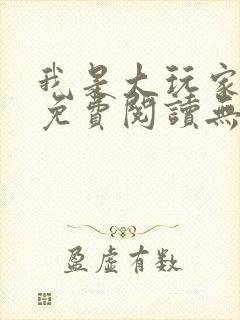 我是大玩家
免費閱讀無
盈虛有数